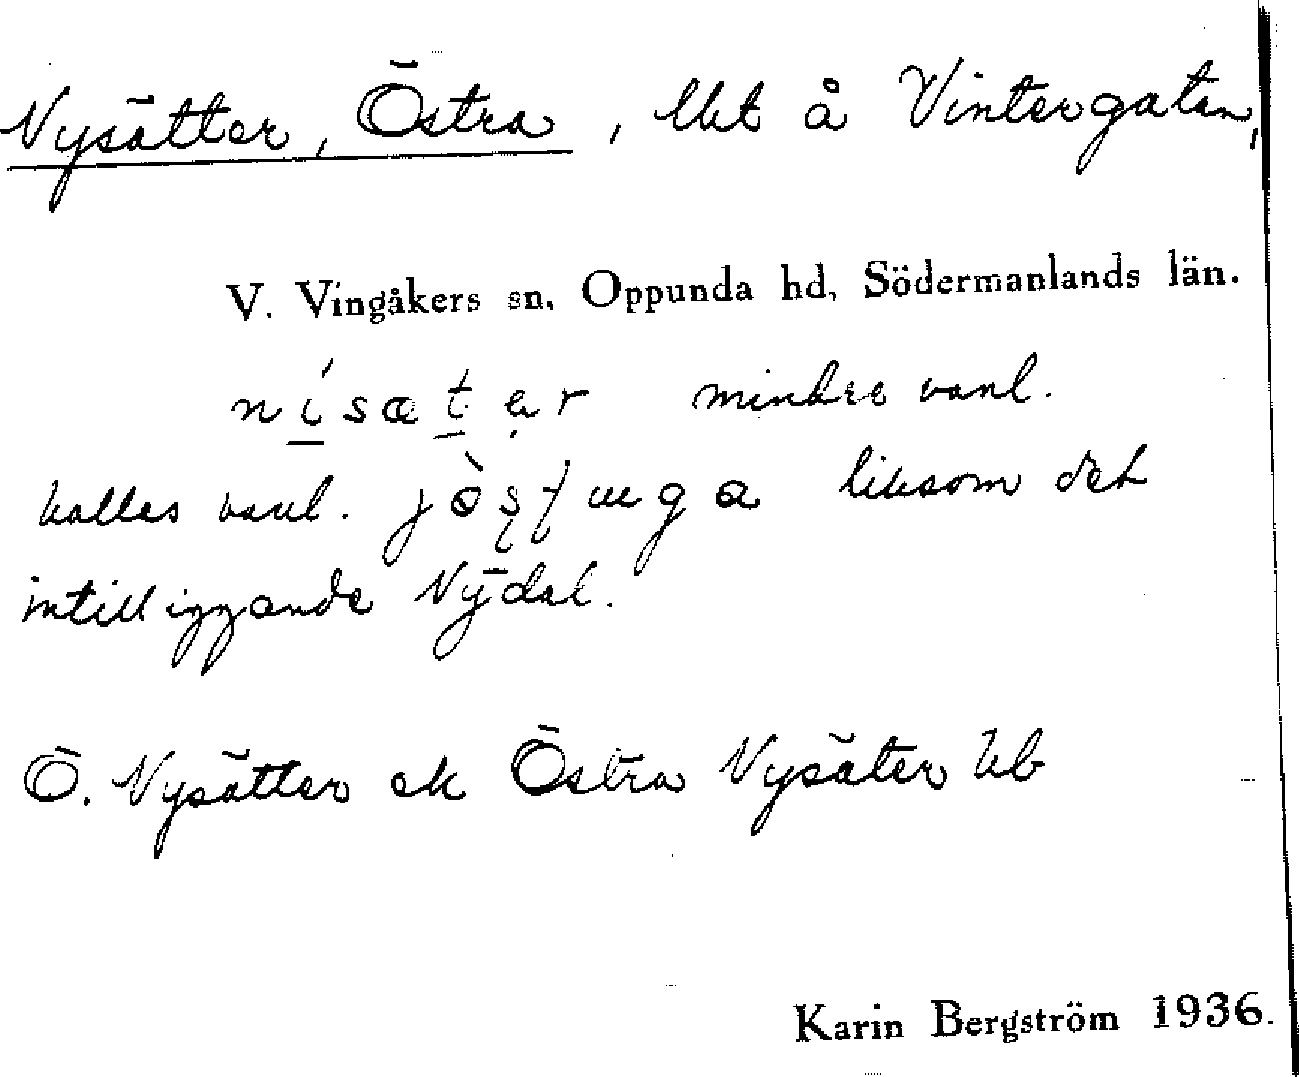 Nysätter, Östra, lht å Vintergatan,
V. Vingåkers sn, Oppunda hd, Södermanlands län.
mindre vanl.
kallas vanl. liksom det
intill iggande Nydal.
Ö. Nysätter ek Östra Nysäter hb
Karin Bergström 1936.